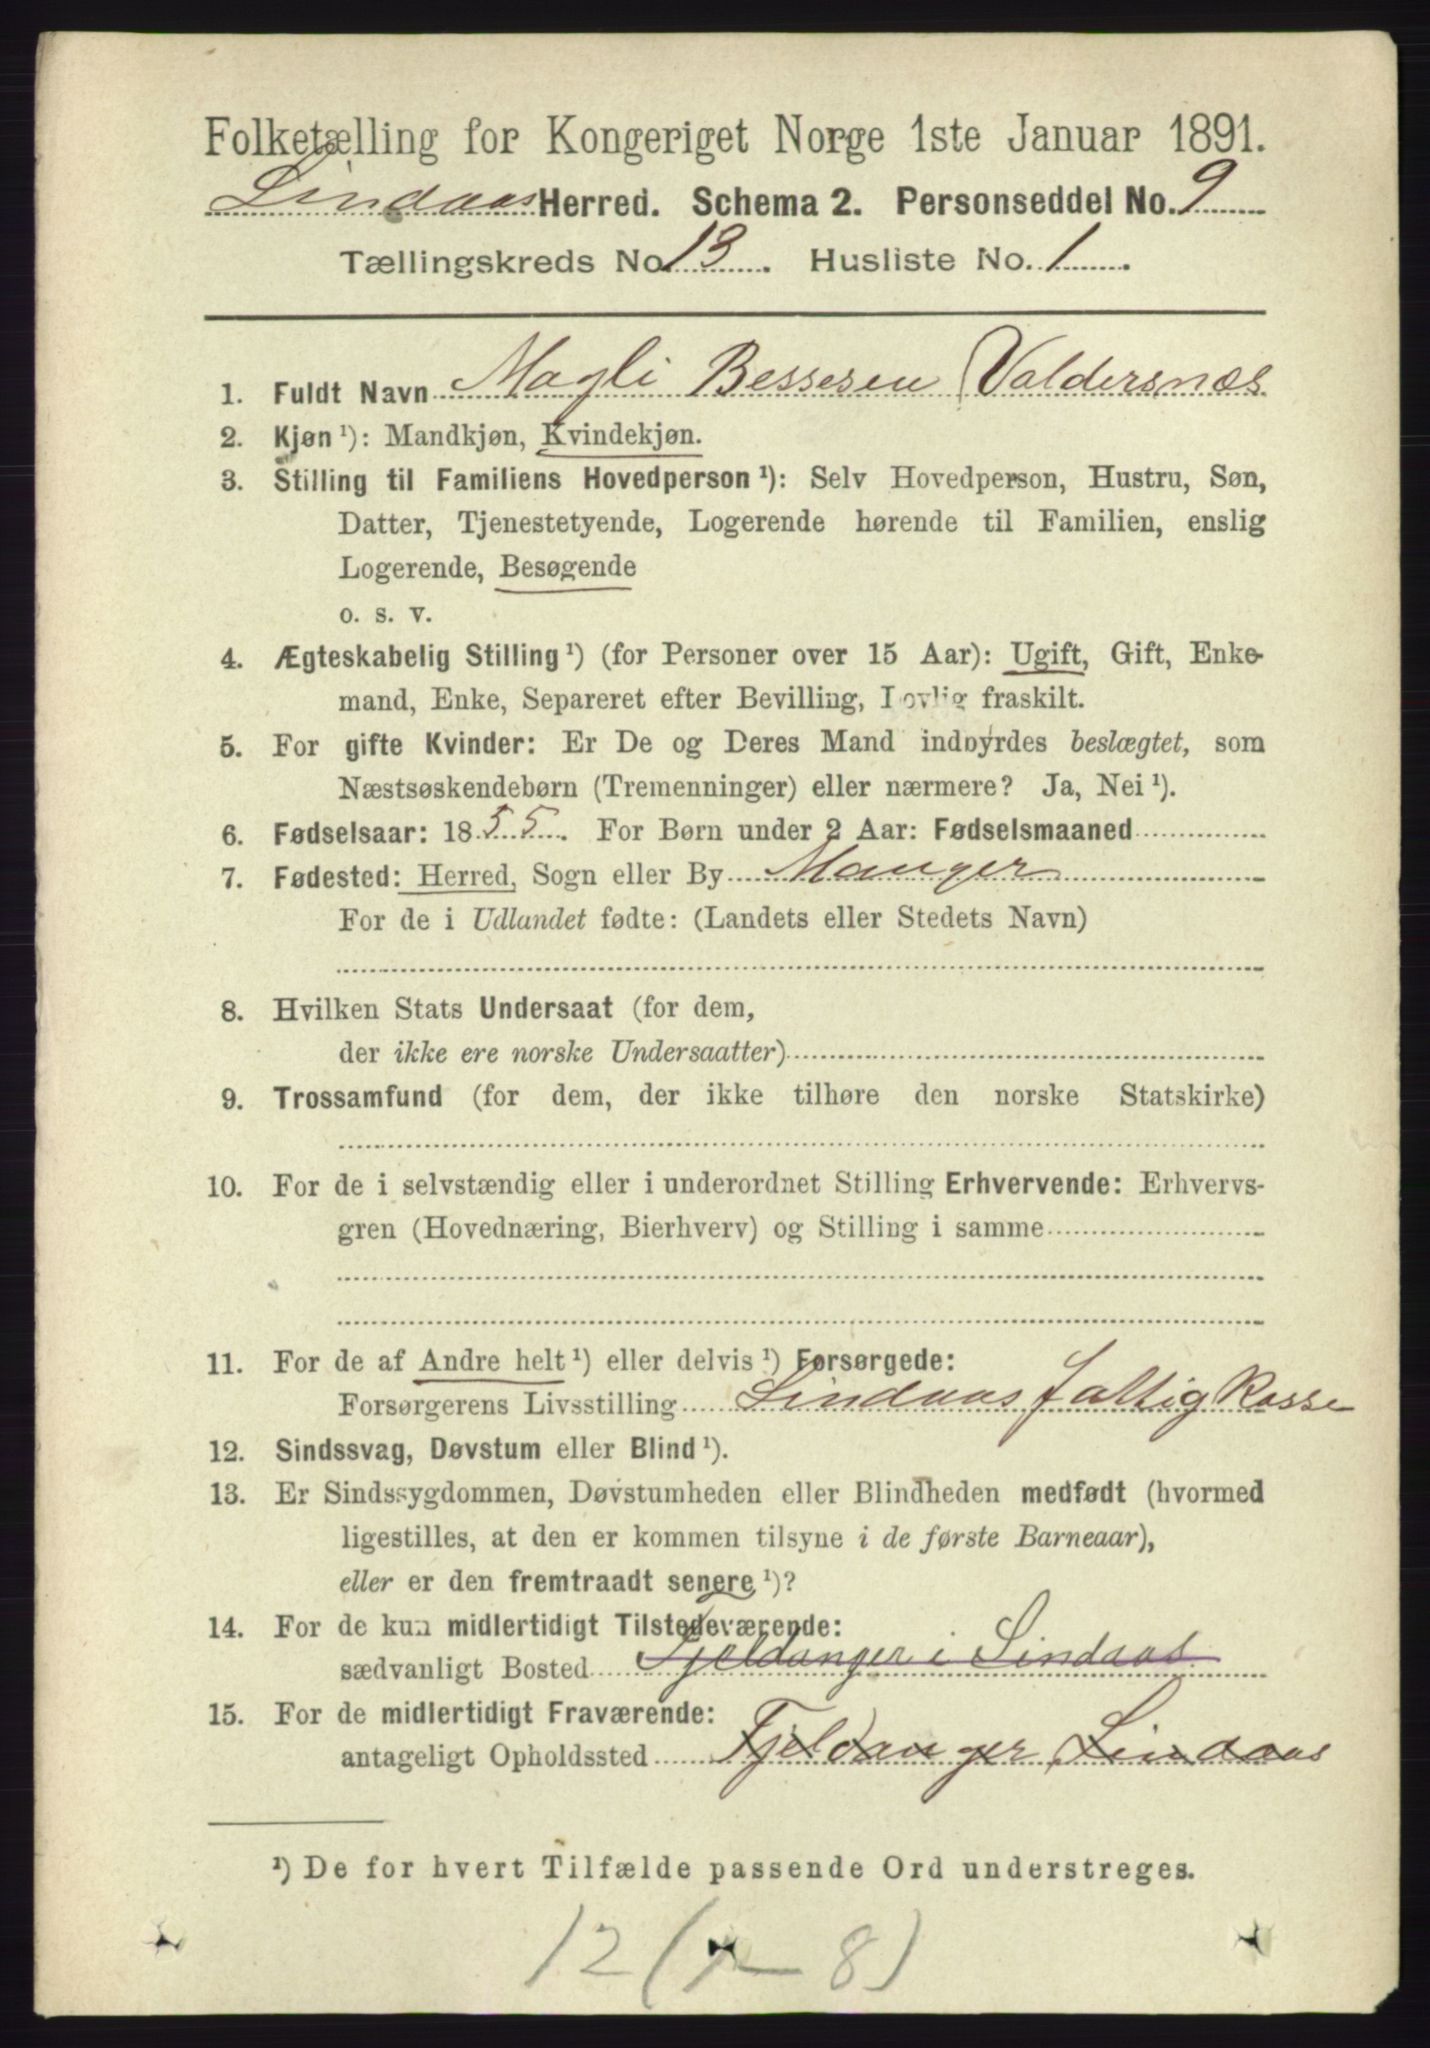 Folketælling for Kongeriget Norge 1ste Januar 1891.
Lindaas Herred. Schema 2. Personseddel No. 9
Tællingskreds No. 13. Husliste No. 1.
1. Fuldt Navn Magli Bessesen Valdersnæs
2. Kjøn ¹): Mandkjøn, Kvindekjøn.
3. Stilling til Familiens Hovedperson ¹): Selv Hovedperson, Hustru, Søn,
Datter, Tjenestetyende, Logerende hørende til Familien, enslig
Logerende, Besøgende
o. s. v.
4. Ægteskabelig Stilling ¹) (for Personer over 15 Aar): Ugift, Gift, Enke-
mand, Enke, Separeret efter Bevilling, Lovlig fraskilt.
5. For gifte Kvinder: Er De og Deres Mand indbyrdes beslægtet, som
Næstsøskendebørn (Tremenninger) eller nærmere? Ja, Nei ¹).
6. Fødselsaar: 1855. For Børn under 2 Aar: Fødselsmaaned
7. Fødested: Herred, Sogn eller By Manger
For de i Udlandet fødte: (Landets eller Stedets Navn)
8. Hvilken Stats Undersaat (for dem,
der ikke ere norske Undersaatter)
9. Trossamfund (for dem, der ikke tilhøre den norske Statskirke)
10. For de i selvstændig eller i underordnet Stilling Erhvervende: Erhvervs-
gren (Hovednæring, Bierhverv) og Stilling i samme
11. For de af Andre helt ¹) eller delvis ¹) Forsørgede:
Forsørgerens Livsstilling Lindaas fattig Kasse
12. Sindssvag, Døvstum eller Blind ¹).
13. Er Sindssygdommen, Døvstumheden eller Blindheden medfødt (hvormed
ligestilles, at den er kommen tilsyne i de første Barneaar),
eller er den fremtraadt senere ¹)?
14. For de kun midlertidigt Tilstedeværende:
sædvanligt Bosted Fjeldanger i Lindaas
15. For de midlertidigt Fraværende:
antageligt Opholdssted Fjeldanger Lindaas
¹) De for hvert Tilfælde passende Ord understreges.
12 (1 — 8)